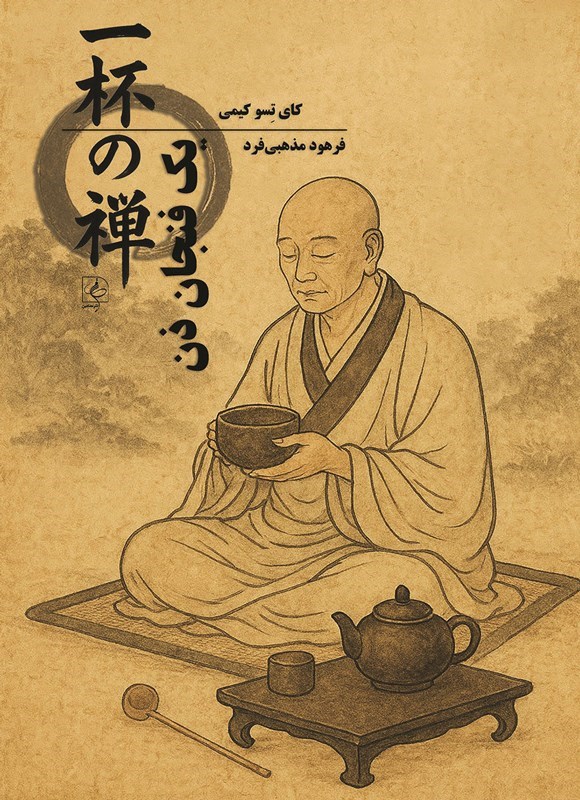 一杯の禅
یک فنجان ذن
کای تِسو کیمی
فرهود مذهبی‌فرد